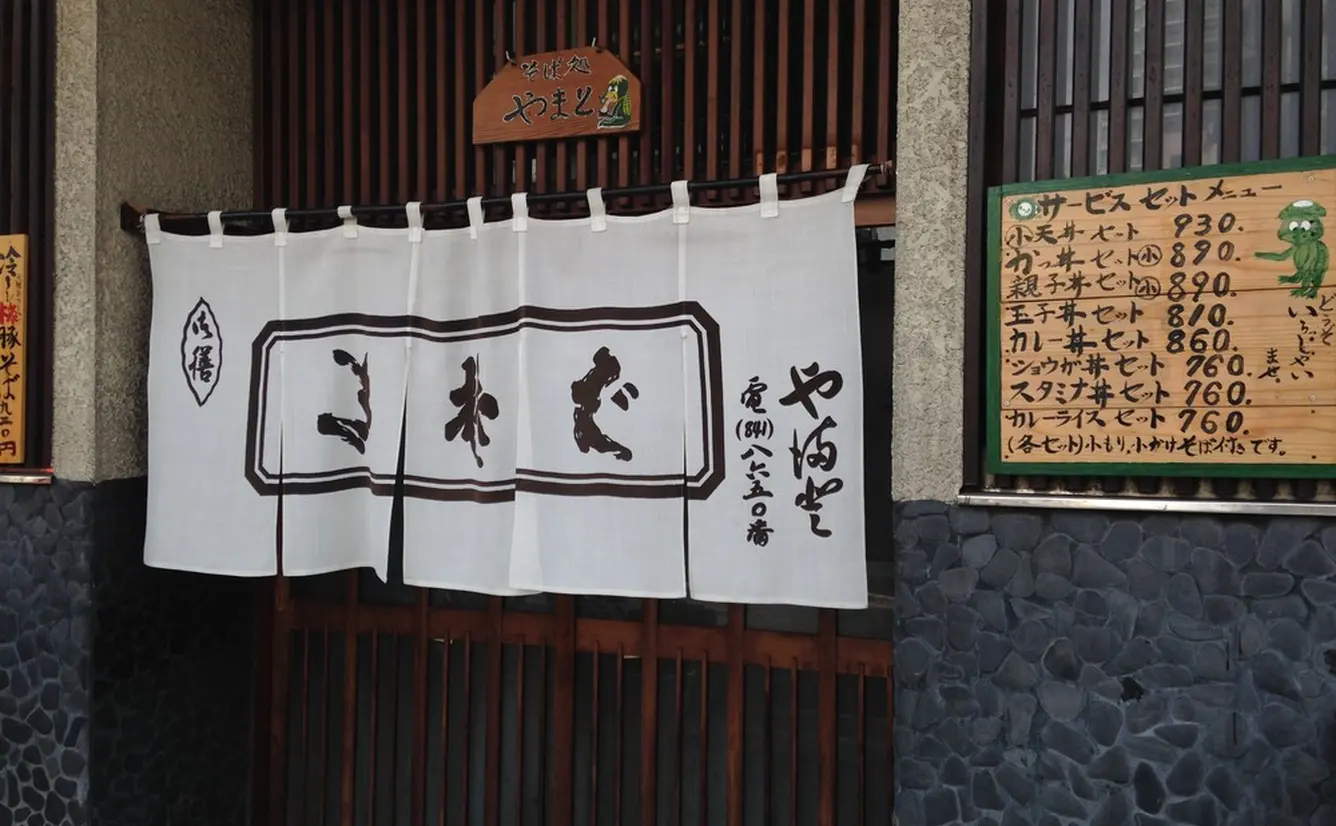 そば処
やまと
御膳
生そば
や満登
電(841)八六五〇番
冷し梅豚そば九二〇円
サービスセットメニュー
㊙小天丼セット 930.
かつ丼セット小 890.
親子丼セット小 890.
玉子丼セット 810.
カレー丼セット 860.
ショウが丼セット 760.
スタミナ丼セット 760.
カレーライスセット 760.
(各セット)小もり、小かけそば付きです。
どうぞ
いらっしゃい
ませ。